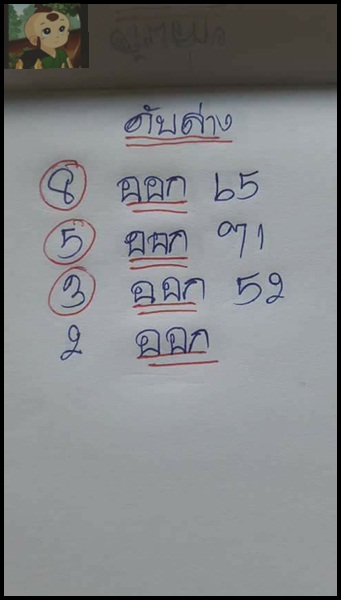 ดับล่าง
8 ออก 65
5 ออก 91
3 ออก 52
2 ออก